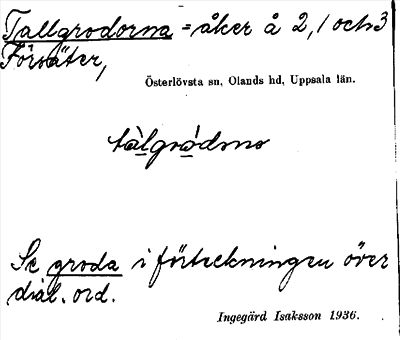 Tallgrodorna = åker å 2, 1 och 3
Försäter,
Österlövsta sn, Olands hd, Uppsala län.
tàlgród̵n̵o
Se groda i förteckningen över
dial. ord.
Ingegärd Isaksson 1936.